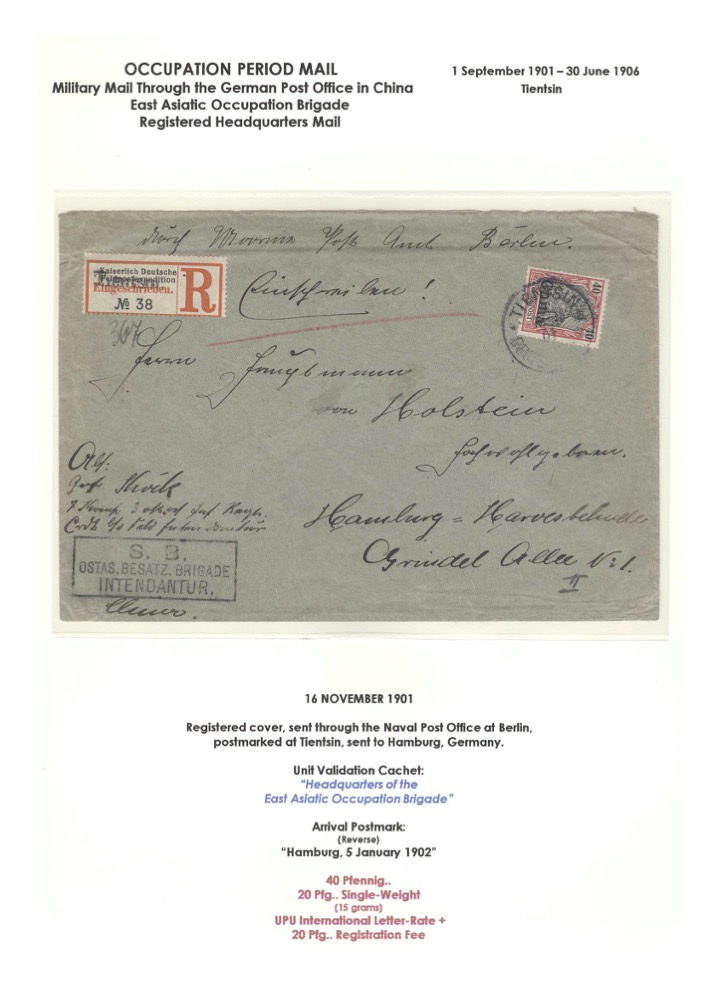 OCCUPATION PERIOD MAIL
Military Mail Through the German Post Office in China
East Asiatic Occupation Brigade
Registered Headquarters Mail
1 September 1901 – 30 June 1906
Tientsin
durch Marine Post Amt Berlin.
Kaiserlich Deutsche
Feldpostexpedition
Eingeschrieben.
№ 38
R
Einschreiben!
367
TIENTSIN
40
40
Herrn Hauptmann
von Holstein
Hochwohlgeboren.
Abs:
Hamburg = Harvestehude
Grindel Allee No 1.
II
S. B.
OSTAS. BESATZ. BRIGADE
INTENDANTUR.
16 NOVEMBER 1901
Registered cover, sent through the Naval Post Office at Berlin,
postmarked at Tientsin, sent to Hamburg, Germany.
Unit Validation Cachet:
"Headquarters of the
East Asiatic Occupation Brigade"
Arrival Postmark:
(Reverse)
"Hamburg, 5 January 1902"
40 Pfennig..
20 Pfg.. Single-Weight
(15 grams)
UPU International Letter-Rate +
20 Pfg.. Registration Fee